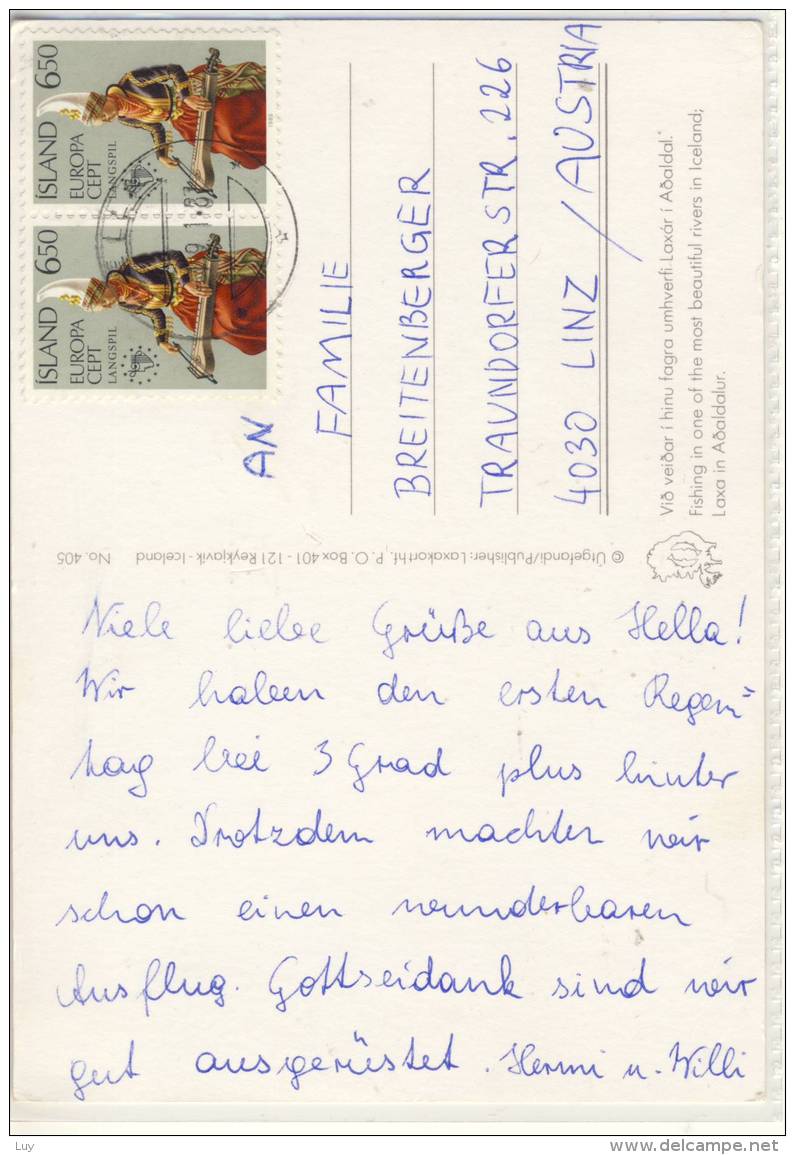 ÍSLAND 6⁵⁰
EUROPA
CEPT
LANGSPIL
ÍSLAND 6⁵⁰
EUROPA
CEPT
LANGSPIL
AN
FAMILIE
BREITENBERGER
TRAUNDORFERSTR. 226
4030 LINZ / AUSTRIA
Við veiðar í hinu fagra umhverfi Laxár í Aðaldal.
Fishing in one of the most beautiful rivers in Iceland;
Laxa in Aðaldalur.
© Útgefandi/Publisher: Laxakort hf, P. O. Box 401 - 121 Reykjavik - Iceland No. 405
Viele liebe Grüße aus Hella!
Wir haben den ersten Regen=
tag bei 3 Grad plus hinter
uns. Trotzdem machten wir
schon einen wunderbaren
Ausflug. Gottseidank sind wir
gut ausgerüstet. Hermi u. Willi
Luy
www.delcampe.net